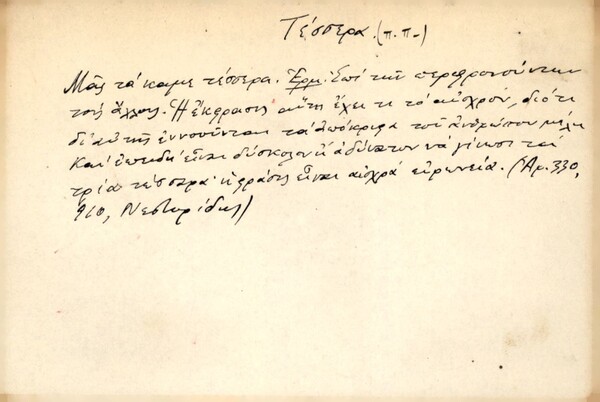 Τέσσερα. (π.π.)
Μᾶς τά 'καμε τέσσερα. Ἑρμ. Ἐπί τῶν περιφρονούντων
τούς ἄλλους. Ἡ ἔκφρασις αὕτη ἔχει τι τό αἰσχρόν, διότι
δι' αὐτῆς ἐννοοῦνται τά ἀπόκρυφα τοῦ ἀνθρώπου μέλη
καί ἐπειδή εἶναι δύσκολον ἤ ἀδύνατον νά γίνωσι τά
τρία τέσσερα ἡ φράσις εἶναι αἰσχρά εἰρωνεία. (Ἀρ. 330,
910, Νεστορίδης)